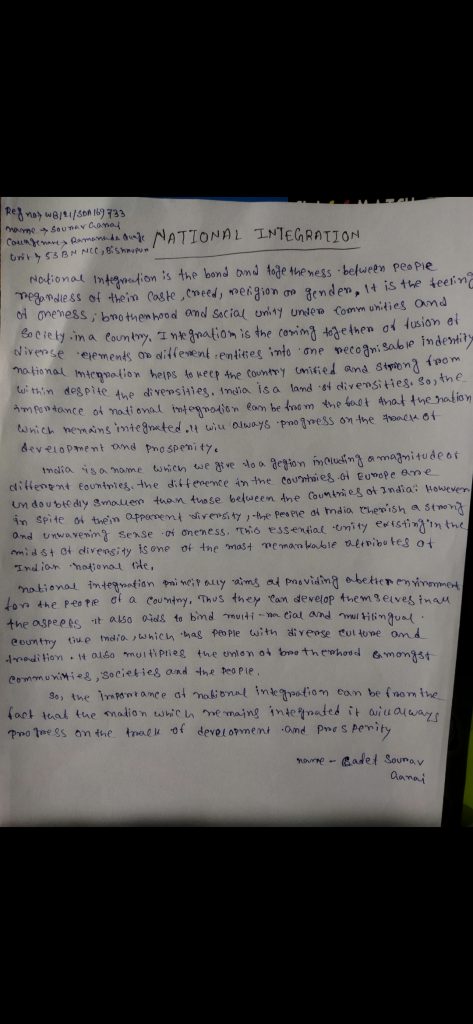 Reg no→ WB/21/SDA169733
name → Sourav Ganai
College name → Ramananda College
Unit → 53 BN NCC, Bishnupur
NATIONAL INTEGRATION
National Integration is the bond and togetheness between people
regardless of their caste, creed, religion or gender. It is the feeling
of oneness, brotherhood and social unity under communities and
Society in a country. Integration is the coming together of fusion of
diverse elements or different entities into one recognisable indentity
national integration helps to keep the country unified and strong from
within despite the diversities. India is a land of diversities. so, the
importance of national integration can be from the fact that the nation
which remains integrated. it will always progress on the track of
development and prosperity.
India is a name which we give to a region including a magnitude of
different countries. the difference in the countries of Europe are
undoubtedly smaller than those between the countries of India: However
in spite of their apparent diversity, the people of India cherish a strong
and unwavering sense of oneness. This essential unity existing in the
midst of diversity is one of the most remarkable attributes of
Indian national life.
national integration principally aims at providing a better environment
for the people of a country. Thus they can develop themselves in all
the aspects it also aids to bind multi-racial and multilingual
country like India, which has people with diverse culture and
tradition. it also multiplies the union of brotherhood amongst
communities, societies and the people.
So, the importance of national integration can be from the
fact that the nation which remains integrated it will always
progress on the track of development and prosperity
name - Cadet Sourav
Ganai